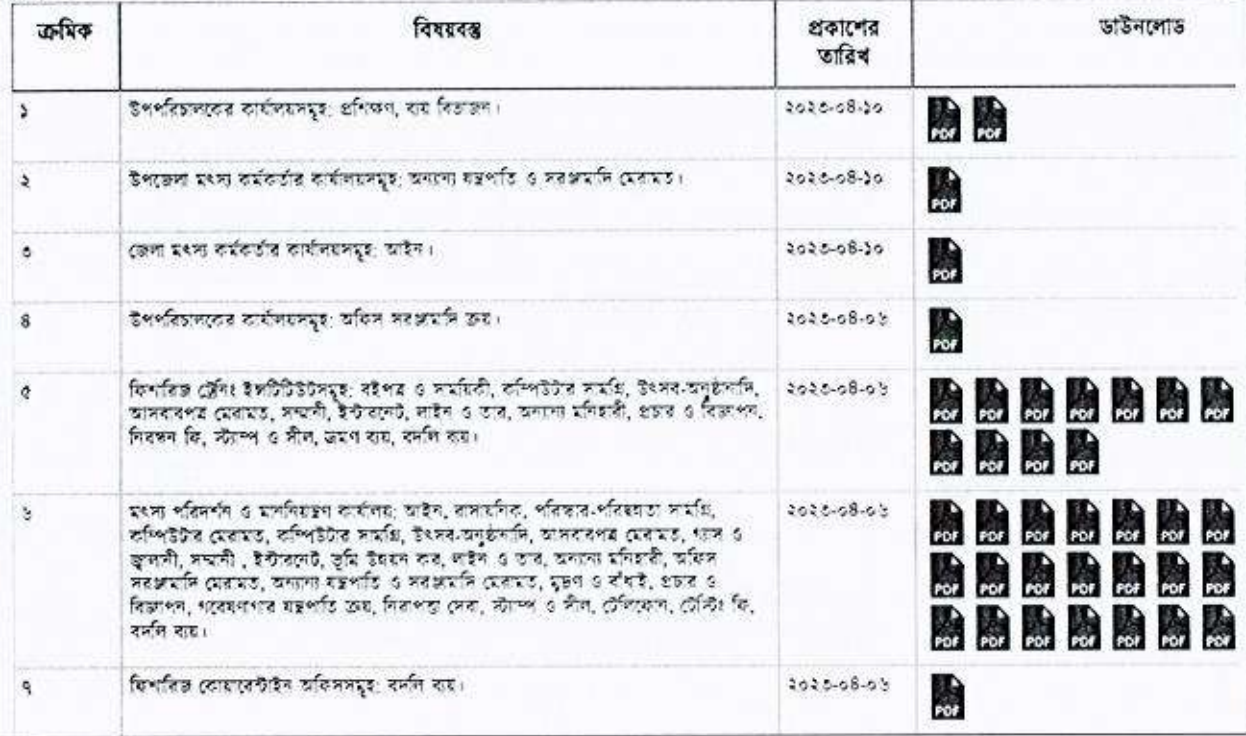 ক্রমিক
বিষয়বস্তু
প্রকাশের
তারিখ
ডাউনলোড
১
উপপরিচালকের কার্যালয়সমূহ: প্রশিক্ষণ, ব্যয় বিভাজন।
২০২৩-০৪-১০
PDF PDF
২
উপজেলা মৎস্য কর্মকর্তার কার্যালয়সমূহ: অন্যান্য যন্ত্রপাতি ও সরঞ্জামাদি মেরামত।
২০২৩-০৪-১০
PDF
৩
জেলা মৎস্য কর্মকর্তার কার্যালয়সমূহ: আইন।
২০২৩-০৪-১০
PDF
৪
উপপরিচালকের কার্যালয়সমূহ: অফিস সরঞ্জামাদি ক্রয়।
২০২৩-০৪-০৬
PDF
৫
ফিশারিজ ট্রেনিং ইন্সটিটিউটসমূহ: বইপত্র ও সাময়িকী, কম্পিউটার সামগ্রি, উৎসব-অনুষ্ঠানাদি,
আসবাবপত্র মেরামত, সম্মানী, ইন্টারনেট, লাইন ও তার, অন্যান্য মনিহারী, প্রচার ও বিজ্ঞাপন,
নিবন্ধন ফি, স্ট্যাম্প ও সীল, ভ্রমণ ব্যয়, বদলি ব্যয়।
২০২৩-০৪-০৬
PDF PDF PDF PDF PDF PDF PDF
PDF PDF PDF PDF
৬
মৎস্য পরিদর্শন ও মাননিয়ন্ত্রণ কার্যালয়: আইন, রাসায়নিক, পরিষ্কার-পরিচ্ছন্নতা সামগ্রি,
কম্পিউটার মেরামত, কম্পিউটার সামগ্রি, উৎসব-অনুষ্ঠানাদি, আসবাবপত্র মেরামত, গ্যাস ও
জ্বালানী, সম্মানী , ইন্টারনেট, ভূমি উন্নয়ন কর, লাইন ও তার, অন্যান্য মনিহারী, অফিস
সরঞ্জামাদি মেরামত, অন্যান্য যন্ত্রপাতি ও সরঞ্জামাদি মেরামত, মুদ্রণ ও বাঁধাই, প্রচার ও
বিজ্ঞাপন, গবেষণাগার যন্ত্রপাতি ক্রয়, নিরাপত্তা সেবা, স্ট্যাম্প ও সীল, টেলিফোন, টেস্টিং ফি,
বদলি ব্যয়।
২০২৩-০৪-০৬
PDF PDF PDF PDF PDF PDF PDF
PDF PDF PDF PDF PDF PDF PDF
PDF PDF PDF PDF PDF PDF PDF
৭
ফিশারিজ কোয়ারেন্টাইন অফিসসমূহ: বদলি ব্যয়।
২০২৩-০৪-০৬
PDF